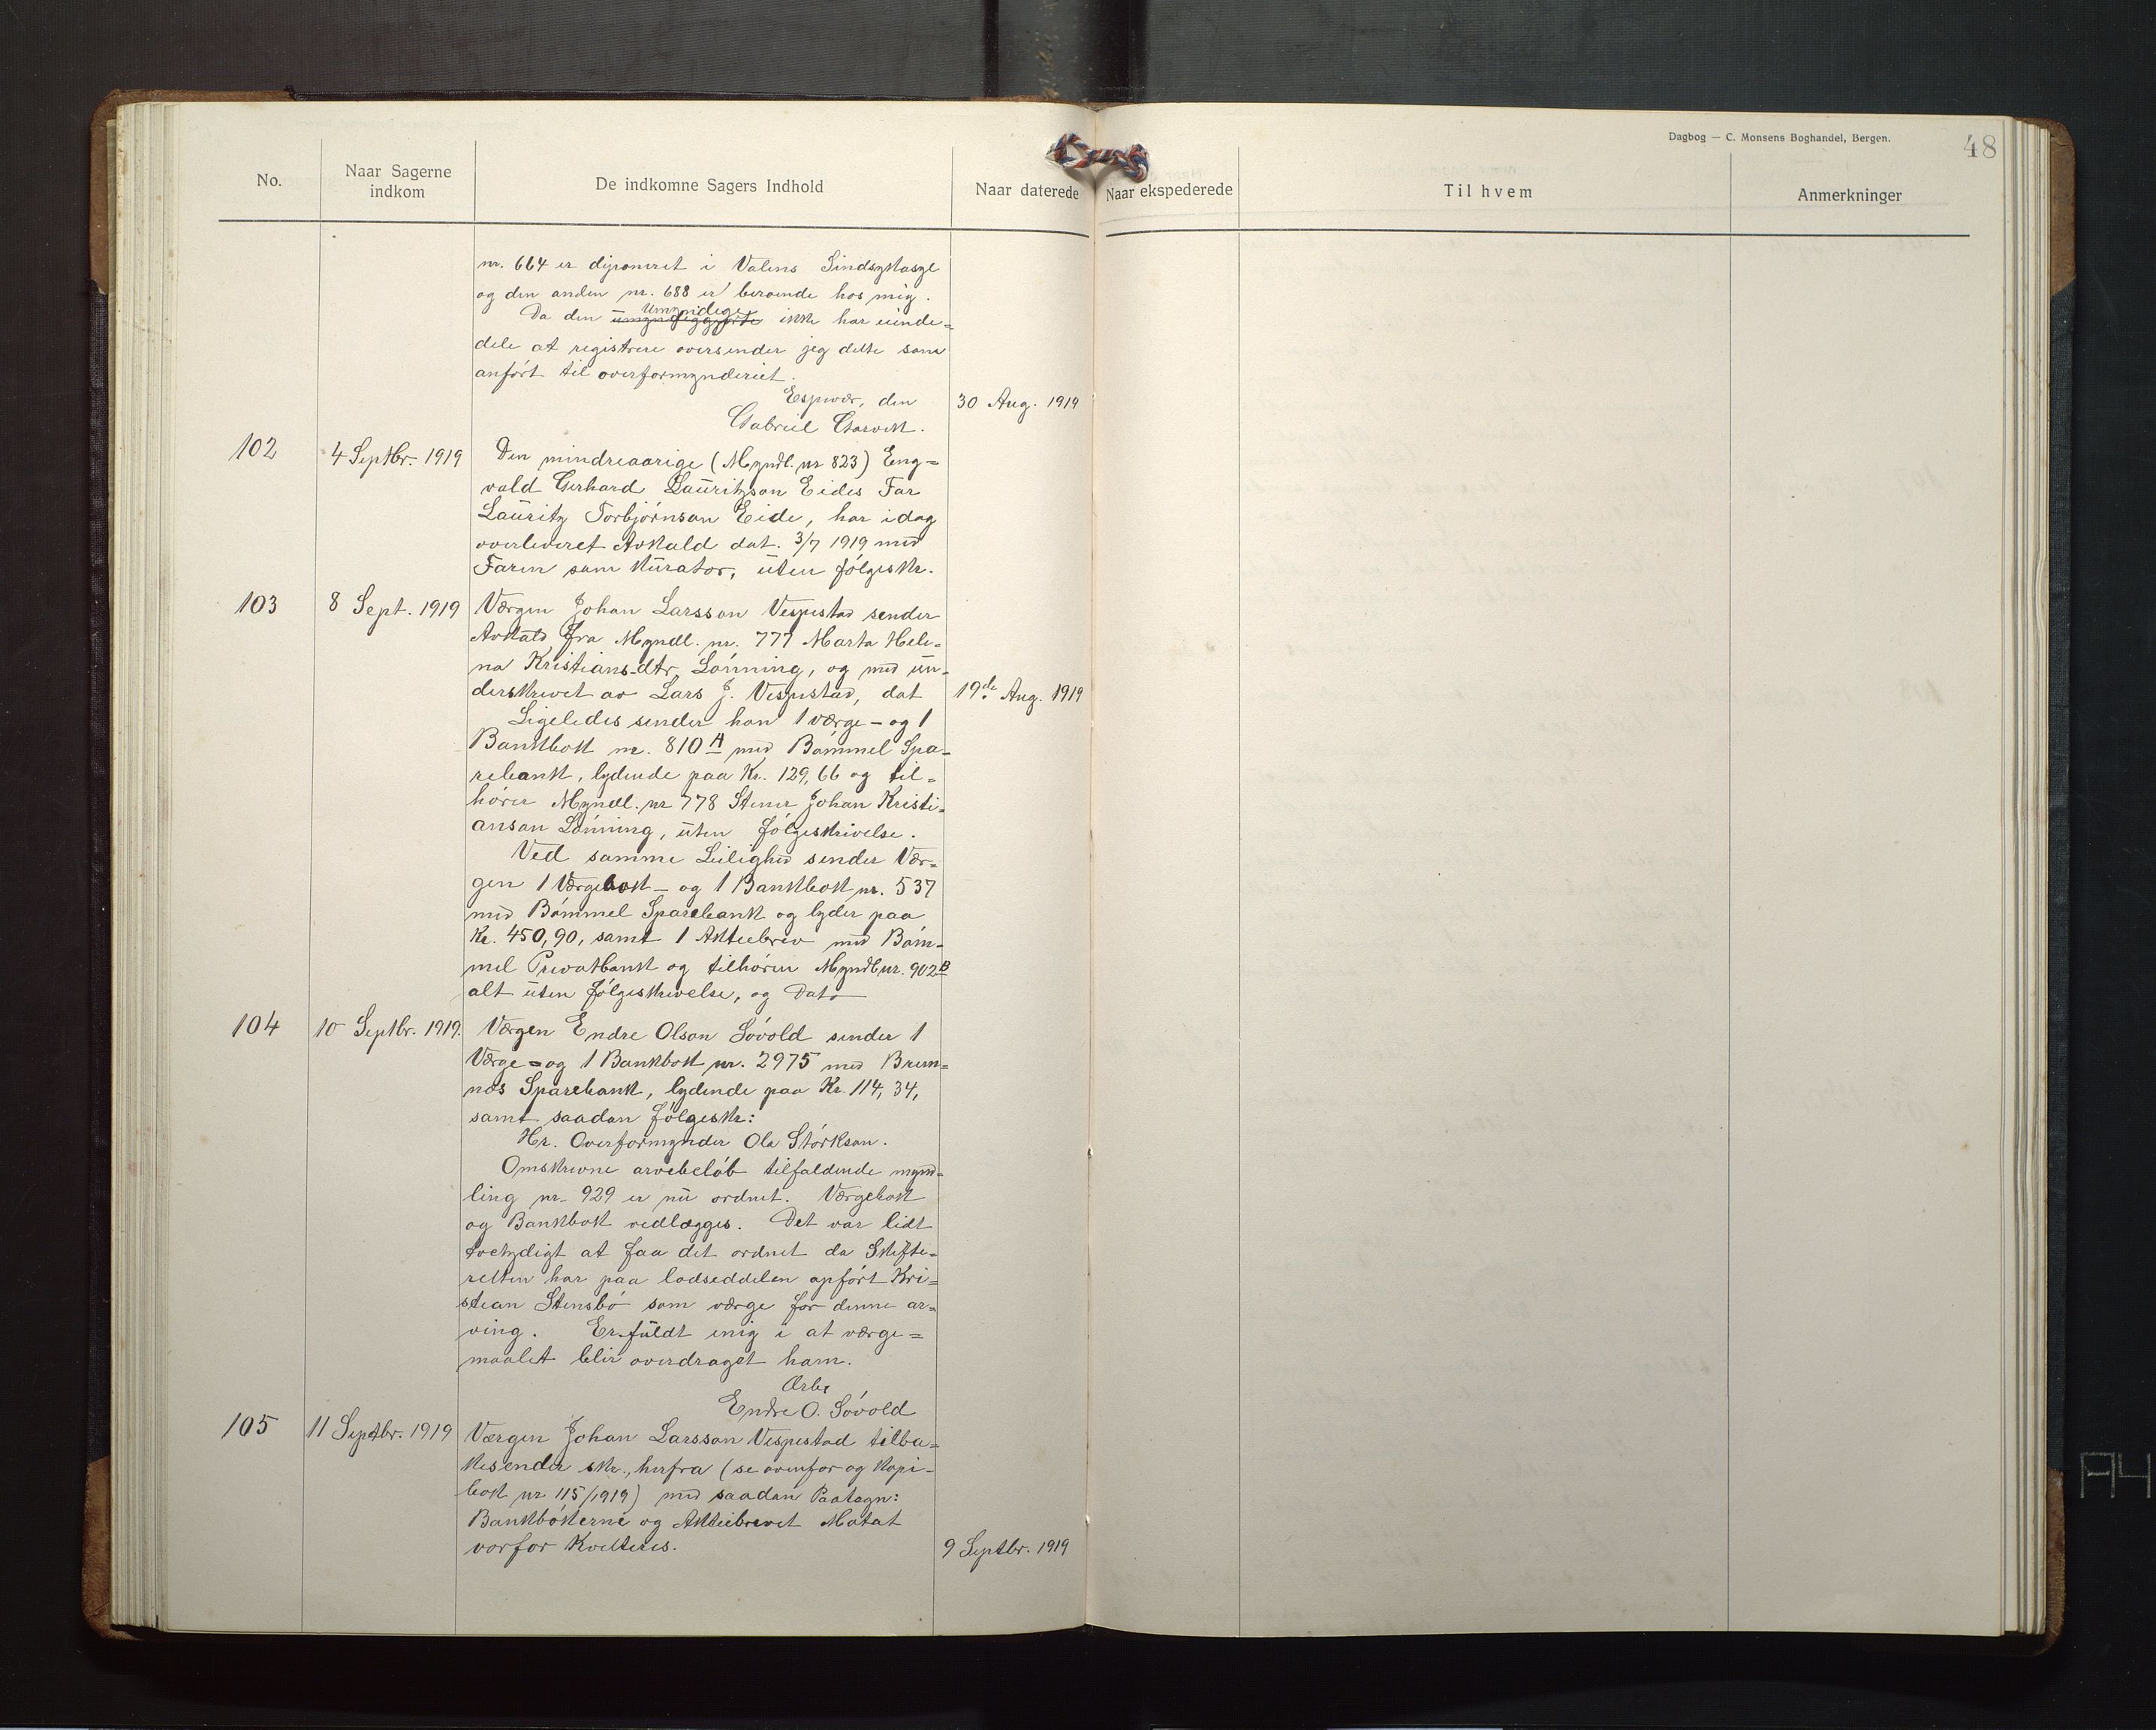 Dagbog — C. Monsens Boghandel, Bergen.
48
No.
Naar Sagerne
indkom
De indkomne Sagers Indhold
Naar daterede
Naar ekspederede
Til hvem
Anmerkninger
nr. 664 er diponeret i Valens Sindsykasyl
og den anden nr. 688 er beroende hos mig.
Umyndige
Da den umyndiggjorte ikke har eiende=
dele at registrere oversender jeg dette som
anført til overformynderiet.
Espevær, den 30 Aug. 1919
Gabriel
102 4 Septbr. 1919 Den mindreaarige (Myndl. nr 823) Eng=
vald Gerhard Lauritzson Eides Far
Lauritz Torbjørnson Eide, har idag
overleveret Avkald dat. 3/7 1919 med
Faren som Kurator, uten følgeskr.
103 8 Sept. 1919 Værgen Johan Larsson Vespestad sender
Avkald fra Myndl. nr. 777 Marta Hele=
na Kristians-dtr. Lønning, og med un-
derskrevet av Lars J. Vespestad, dat 19de Aug. 1919
Ligeledes sender han 1 værge - og 1
Bankbok nr. 810 A med Bømmel Spa-
rebank, lydende paa Kr. 129,66 og til=
hører Myndl. nr 778 Stener Johan Kristi=
anson Lønning, uten følgeskrivelse.
Ved samme Leilighed sender Vær=
gen 1 Værgebok - og 1 Bankbok nr. 537
med Bømmel Sparebank og lyder paa
Kr. 450,90, samt 1 Aktiebrev med Bøm-
mel Privatbank og tilhører Myndl nr. 902 B
alt uten følgeskrivelse, og Dato
104 10 Septbr. 1919. Værgen Endre Olson Søvold sender 1
Værge = og 1 Bankbok nr. 2975 med Brem=
nes Sparebank, lydende paa Kr. 114,34,
samt saadan følgeskr:
Hr. Overformynder Ola Størkson.
Omskrevne arvebeløb tilfaldende mynd=
ling nr. 929 er nu ordnet. Værgebok
og Bankbok vedlægges. Det var lidt
tvetydigt at faa det ordnet da Skifte=
retten har paa lodseddelen opført Kri=
stian Stensbø som værge for denne ar=
ving. Er fuldt enig i at værge=
maalet blir overdraget ham.
Ærbø
Endre O. Søvold
105 11 Septbr. 1919 Værgen Johan Larsson Vespestad tilba=
kesender skr., herfra (se ovenfor og Kopi-
bok nr 115/1919) med saadan Paategn:
Bankbøkerne og Aktiebrevet Motat
vorfor Kvitteres. 9 Septbr. 1919